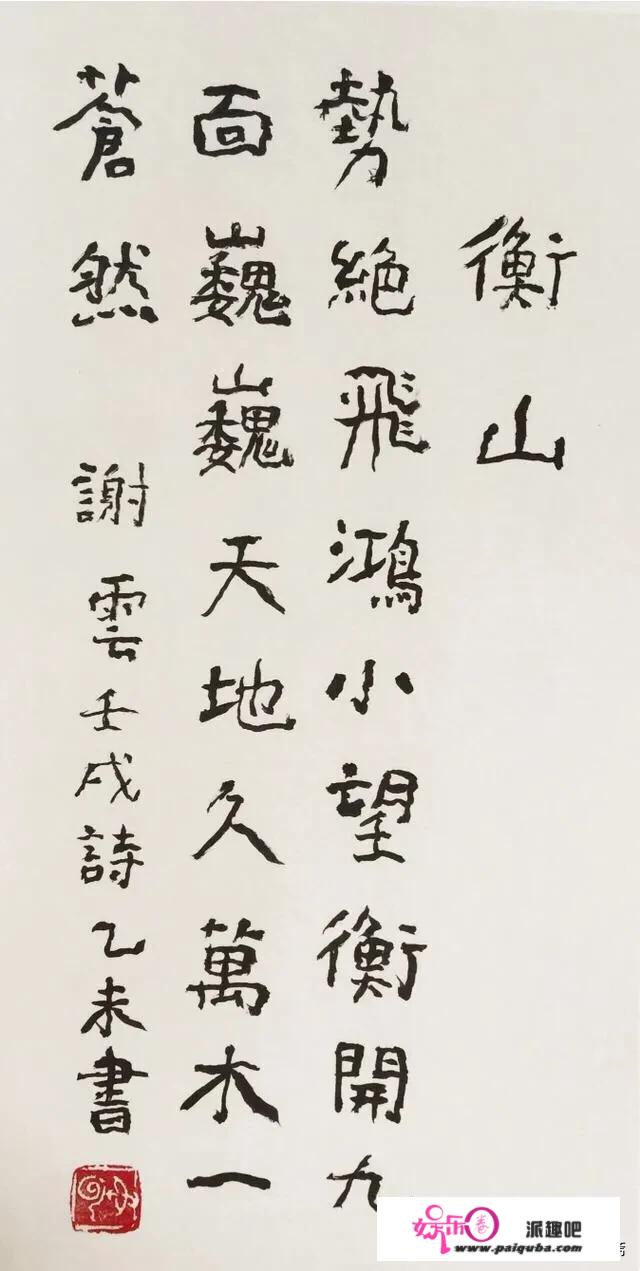 衡山
勢絕飛鴻小望衡開九
面巍巍天地久萬木一
蒼然 謝雲壬戌詩乙未書
娱乐圈 派趣吧
www.paiquba.com